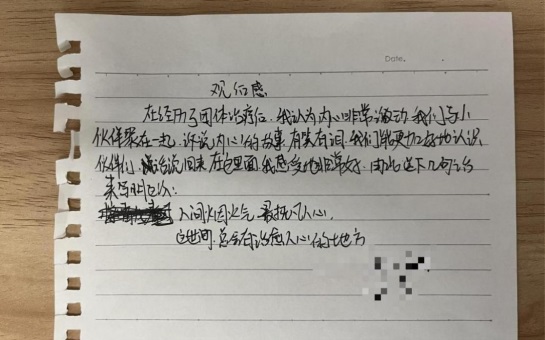 Date.
观后感
在经历了团体治疗后,我认为内心非常激动,我们与小
伙伴聚在一起,诉说内心的故事,有笑有泪,我们能更加好的认识
伙伴们,话说回来,在这里面,我感受非常好,因此送下几句话
来写明心:
人间烟火气,最抚凡人心,
世间总会有治愈人心的地方